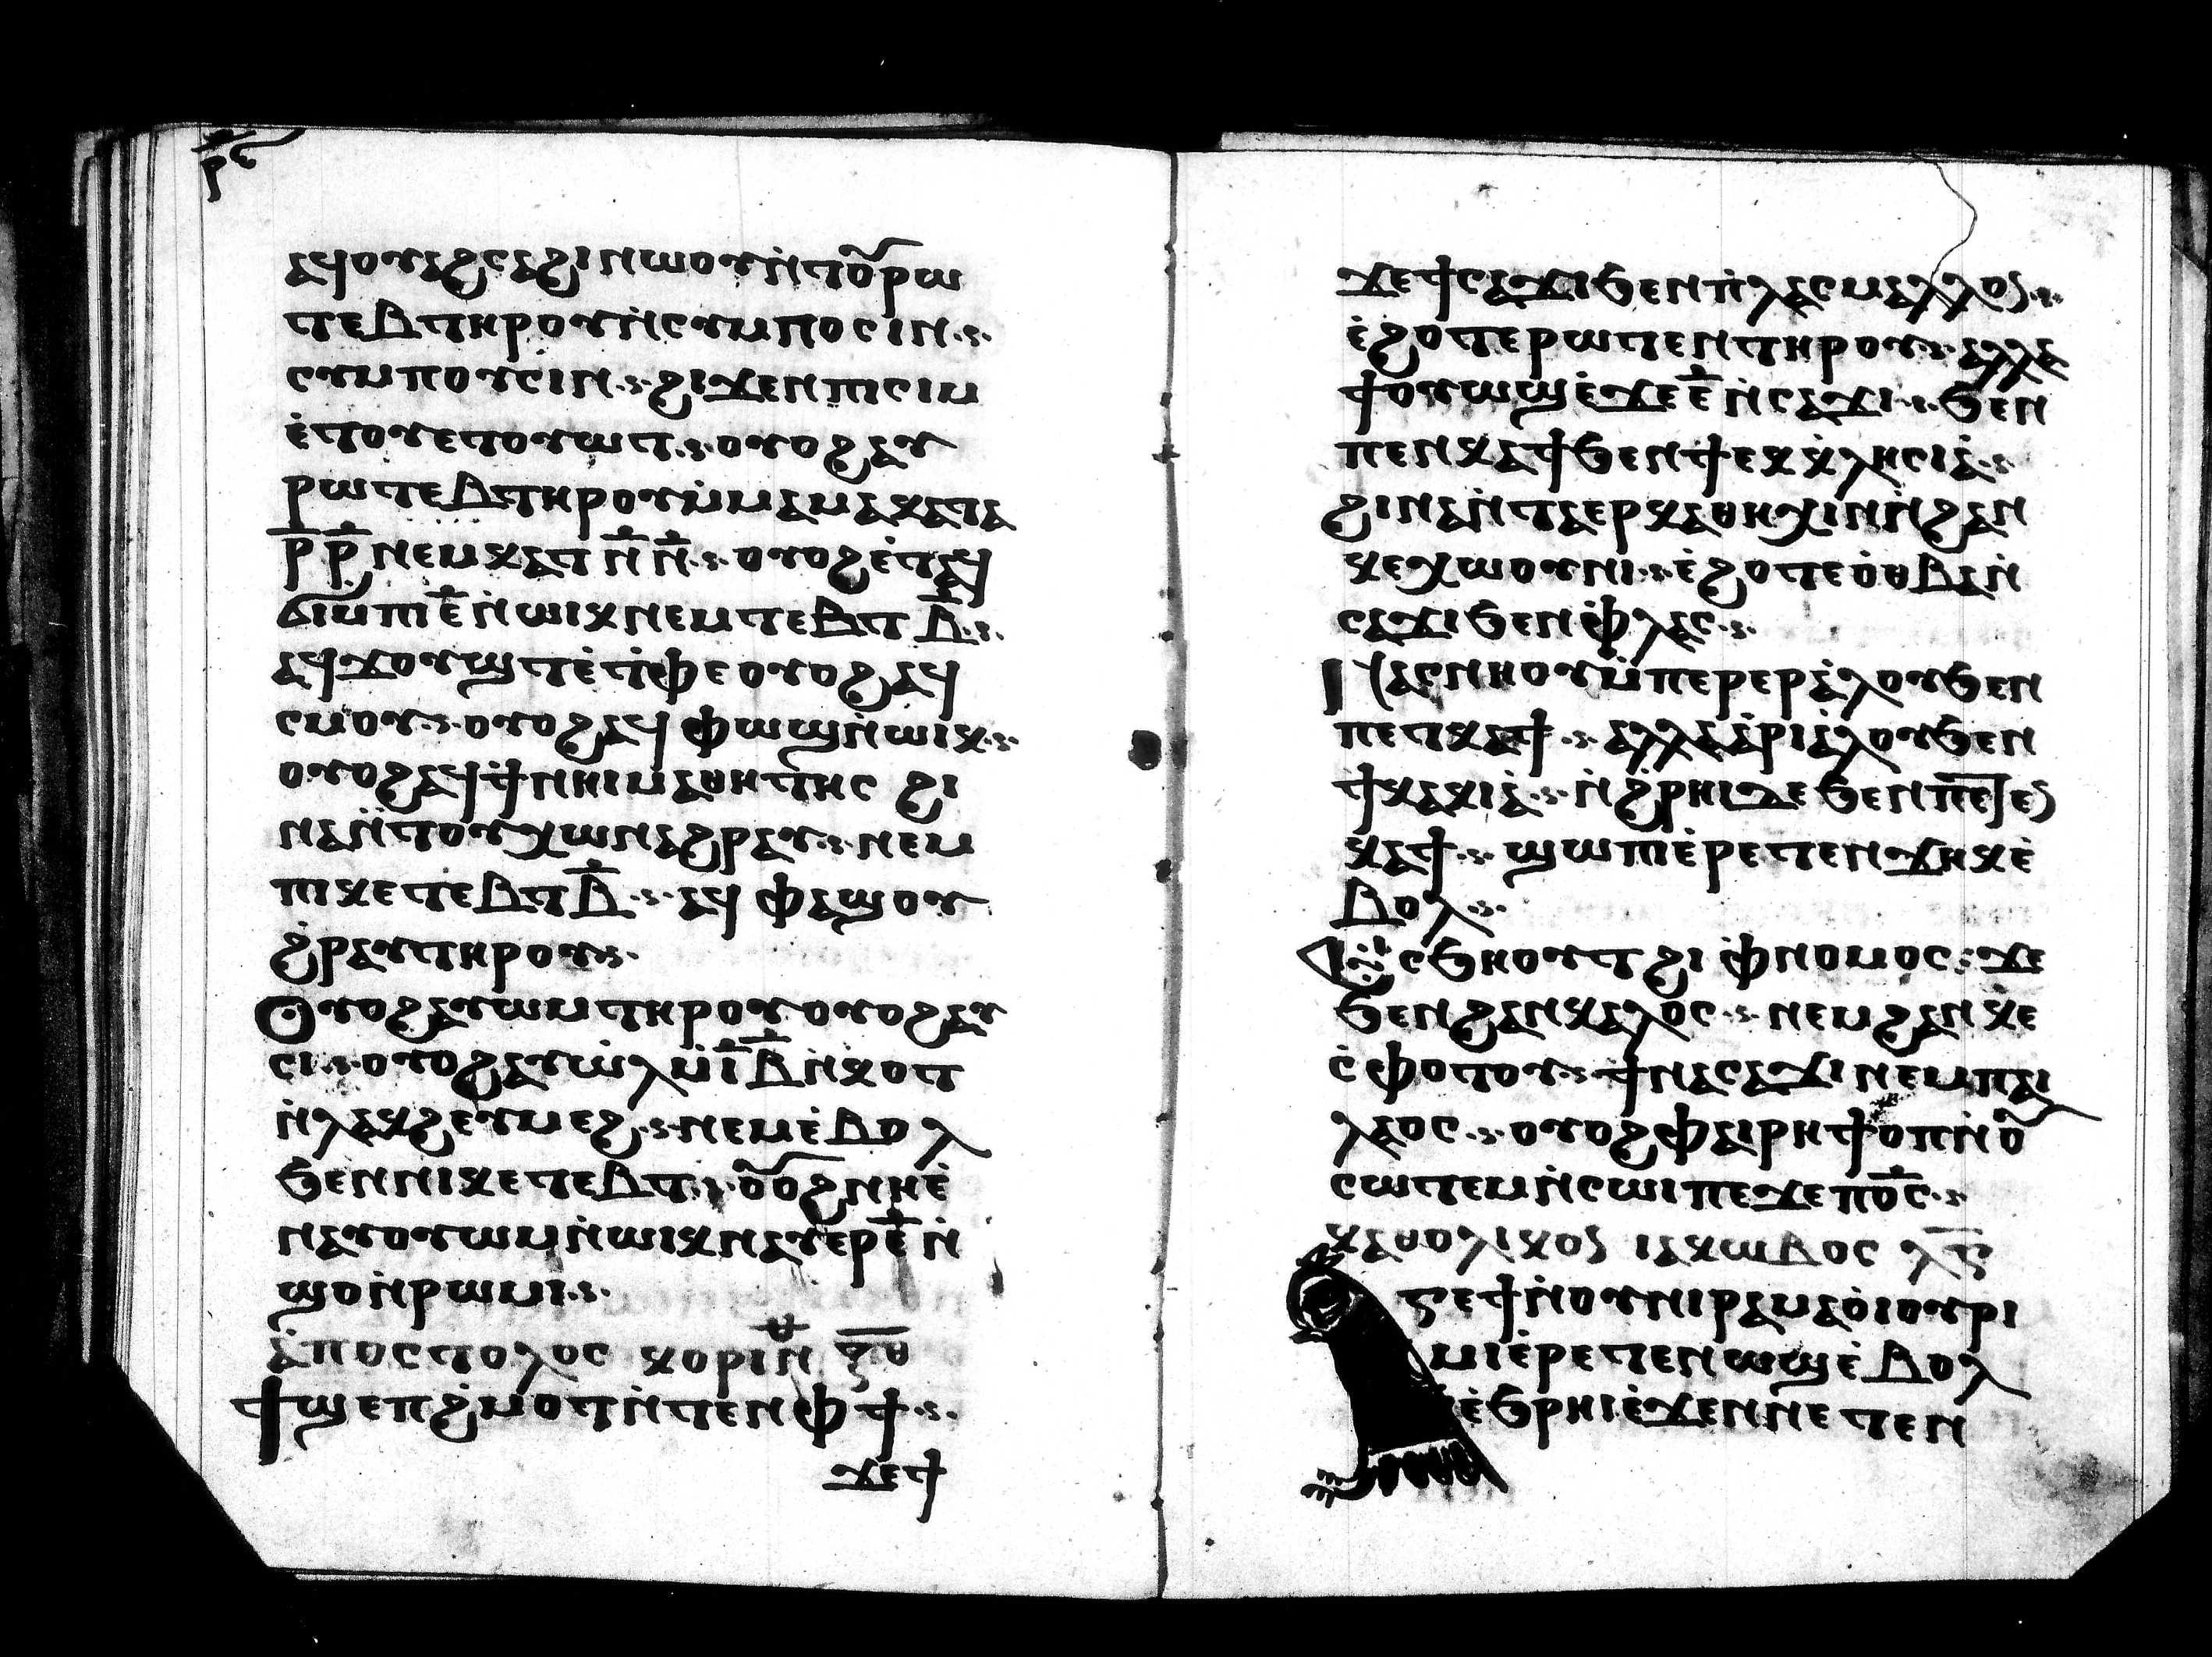 ⲣⲋ
ⲁϥⲟⲩⲁϩⲥⲁϩⲛⲓ ⲛⲱⲟⲩ ⲛ̀ⲧⲟⲩⲣⲱ
ⲧⲉⲃ ⲧⲏⲣⲟⲩ ⲛ̀ⲥⲩⲙⲡⲟⲥⲓⲛ
ⲥⲩⲙⲡⲟⲩⲥⲓⲛ ϩⲓϫⲉⲛ ⲡⲓⲥⲓⲙ
ⲉ̀ⲧⲟⲩⲉⲧⲟⲩⲱⲧ ⲟⲩⲟϩ ⲁⲩ
ⲣⲱⲧⲉⲃ ⲧⲏⲣⲟⲩ ⲙ̀ⲙⲁ ⲙⲁ ⲕⲁⲧⲁ
ⲣ̅ ⲣ̅ ⲛⲉⲙ ⲕⲁⲧ ⲛ̅ ⲛ̅ ⲟⲩⲟϩ ⲉ̀ⲧⲁϥ
ϭⲓ ⲙ̀ⲡⲓⲉ̅ ⲛ̀ⲱⲓⲕ ⲛⲉⲙ ⲧⲉⲃⲧ ⲃ̅
ⲁϥϫⲟⲩϣⲧ ⲉ̀ⲧ̀ⲫⲉ ⲟⲩⲟϩ ⲁϥ
ⲥⲙⲟⲩ ⲟⲩⲟϩ ⲁϥⲫⲱϣ ⲛ̀ⲱⲓⲕ
ⲟⲩⲟϩ ⲁϥϯ ⲛⲛⲓⲙⲁⲑⲏⲧⲏⲥ ϩⲓ
ⲛⲁ ⲛ̀ⲧⲟⲩⲭⲱ ⲛⲁϩⲣⲁⲩ ⲛⲉⲙ
ⲡⲓⲕⲉⲧⲉⲃⲧ ⲃ̅ ⲁϥⲫⲁϣⲟⲩ
ϩ̀ⲣⲁⲩ ⲧⲏⲣⲟⲩ
Ⲟⲩⲟϩ ⲁⲩⲱⲙ ⲧⲏⲣⲟⲩ ⲟⲩⲟϩ ⲁⲩ
ⲥⲓ ⲟⲩⲟϩ ⲁⲩⲱ̀ⲗⲓ ⲙ̀ⲓ̅ⲃ̅ ⲛ̀ⲕⲟⲧ
ⲛ̀ⲗⲁⲕϩ ⲉⲩⲙⲉϩ ⲛⲉⲙ ⲉ̀ⲃⲟⲗ
ϧⲉⲛ ⲛⲓⲕⲉⲧⲉⲃⲧ ⲟⲩⲟϩ ⲛⲏ ⲉ̀
ⲛⲁⲩⲟⲩⲱⲙ ⲛ̀ⲱⲓⲕ ⲛⲁⲩⲉⲣ ⲉ̅ ⲛ̀
ϣⲟ ⲛ̀ⲣⲱⲙⲓ
ⲁ̀ⲡⲟⲥⲧⲟⲗⲟⲥ ⲕⲟⲣⲓⲛ
Ϯϣⲉⲡϩ̀ⲙⲟⲧ ⲛ̀ⲧⲉⲛ ⲫϯ
ϫⲉ ϯ
ϫⲉ ϯⲥⲁϫⲓ ϧⲉⲛ ⲡ̀ⲗⲁⲥ ⲙⲁⲗⲗⲟⲛ
ⲉ̀ϩⲟⲧⲉⲣⲱⲧⲉⲛ ⲧⲏⲣⲟⲩ ⲁⲗⲗⲁ
ϯⲟⲩⲱϣ ⲉ̀ϫⲉ ⲉ̅ ⲛ̀ⲥⲁϫⲓ ϧⲉⲛ
ⲡⲉⲛⲕⲁϯ ϧⲉⲛ ϯⲉⲕⲕ̀ⲗⲏⲥⲓⲁ̀
ϩⲓⲛⲁ ⲛ̀ⲧⲁⲉⲣⲕⲁⲑⲏⲭⲓⲛ ⲛ̀ϩⲁⲛ
ⲕⲉⲭⲱⲟⲩⲛⲓ ⲉ̀ϩⲟⲧⲉ ⲟ̀ⲑⲃⲁ ⲛ̀
ⲥⲁϫⲓ ϧⲉⲛ ⲫ̀ⲗⲁⲥ
Ⲛⲁⲥⲛⲏⲟⲩ ⲙ̀ⲡⲉⲣⲉⲣⲁ̀ⲗⲟⲩ ϧⲉⲛ
ⲡⲉⲧⲕⲁϯ ⲁⲗⲗⲁ ⲁ̀ⲣⲓⲁ̀ⲗⲟⲩ ϧⲉⲛ
ϯⲕⲁⲕⲓⲁ̀ ⲛ̀ϩ̀ⲣⲏⲓ ⲇⲉ ϧⲉⲛ ⲡⲉⲧⲉⲛ
ⲕⲁϯ ϣⲱⲡⲓ ⲉ̀ⲣⲉⲧⲉⲛϫⲏⲕ ⲉ̀
ⲃⲟⲗ
Ⲥⲥϧⲏⲟⲩⲧ ϩⲓ ⲫ̀ⲛⲟⲙⲟⲥ ϫⲉ
ϧⲉⲛ ϩⲁⲛⲕⲁⲗⲟⲥ ⲛⲉⲙ ϩⲁⲛⲕⲉ
ⲥ̀ⲫⲟⲧⲟⲩ ϯⲛⲁⲥⲁϫⲓ ⲛⲉⲙ ⲡⲁⲓ
ⲗⲁⲟⲥ ⲟⲩⲟϩ ⲫⲁⲓ ⲣⲏϯ ⲟⲡ ⲛ̀ⲟⲩ
ⲥⲱⲧⲉⲙ ⲛ̀ⲥⲱⲓ ⲡⲉϫⲉ ⲡⲟ̅ⲥ̅
ⲕⲁⲑⲟⲗⲓⲕⲟⲛ ⲓⲁⲕⲱⲃⲟⲥ ⲗ̅ⲋ̅
ⲋⲉ ϯⲛⲟⲩ ⲛⲓⲣⲁⲙⲁⲟ̀ⲓ ⲟⲩ ⲣⲓ
ⲙⲓ ⲉ̀ⲣⲉⲧⲉⲛⲱϣ ⲉ̀ⲃⲟⲗ
ⲉ̀ϧⲣⲏⲓ ⲉ̀ϫⲉⲛ ⲛⲉⲧⲉⲛ